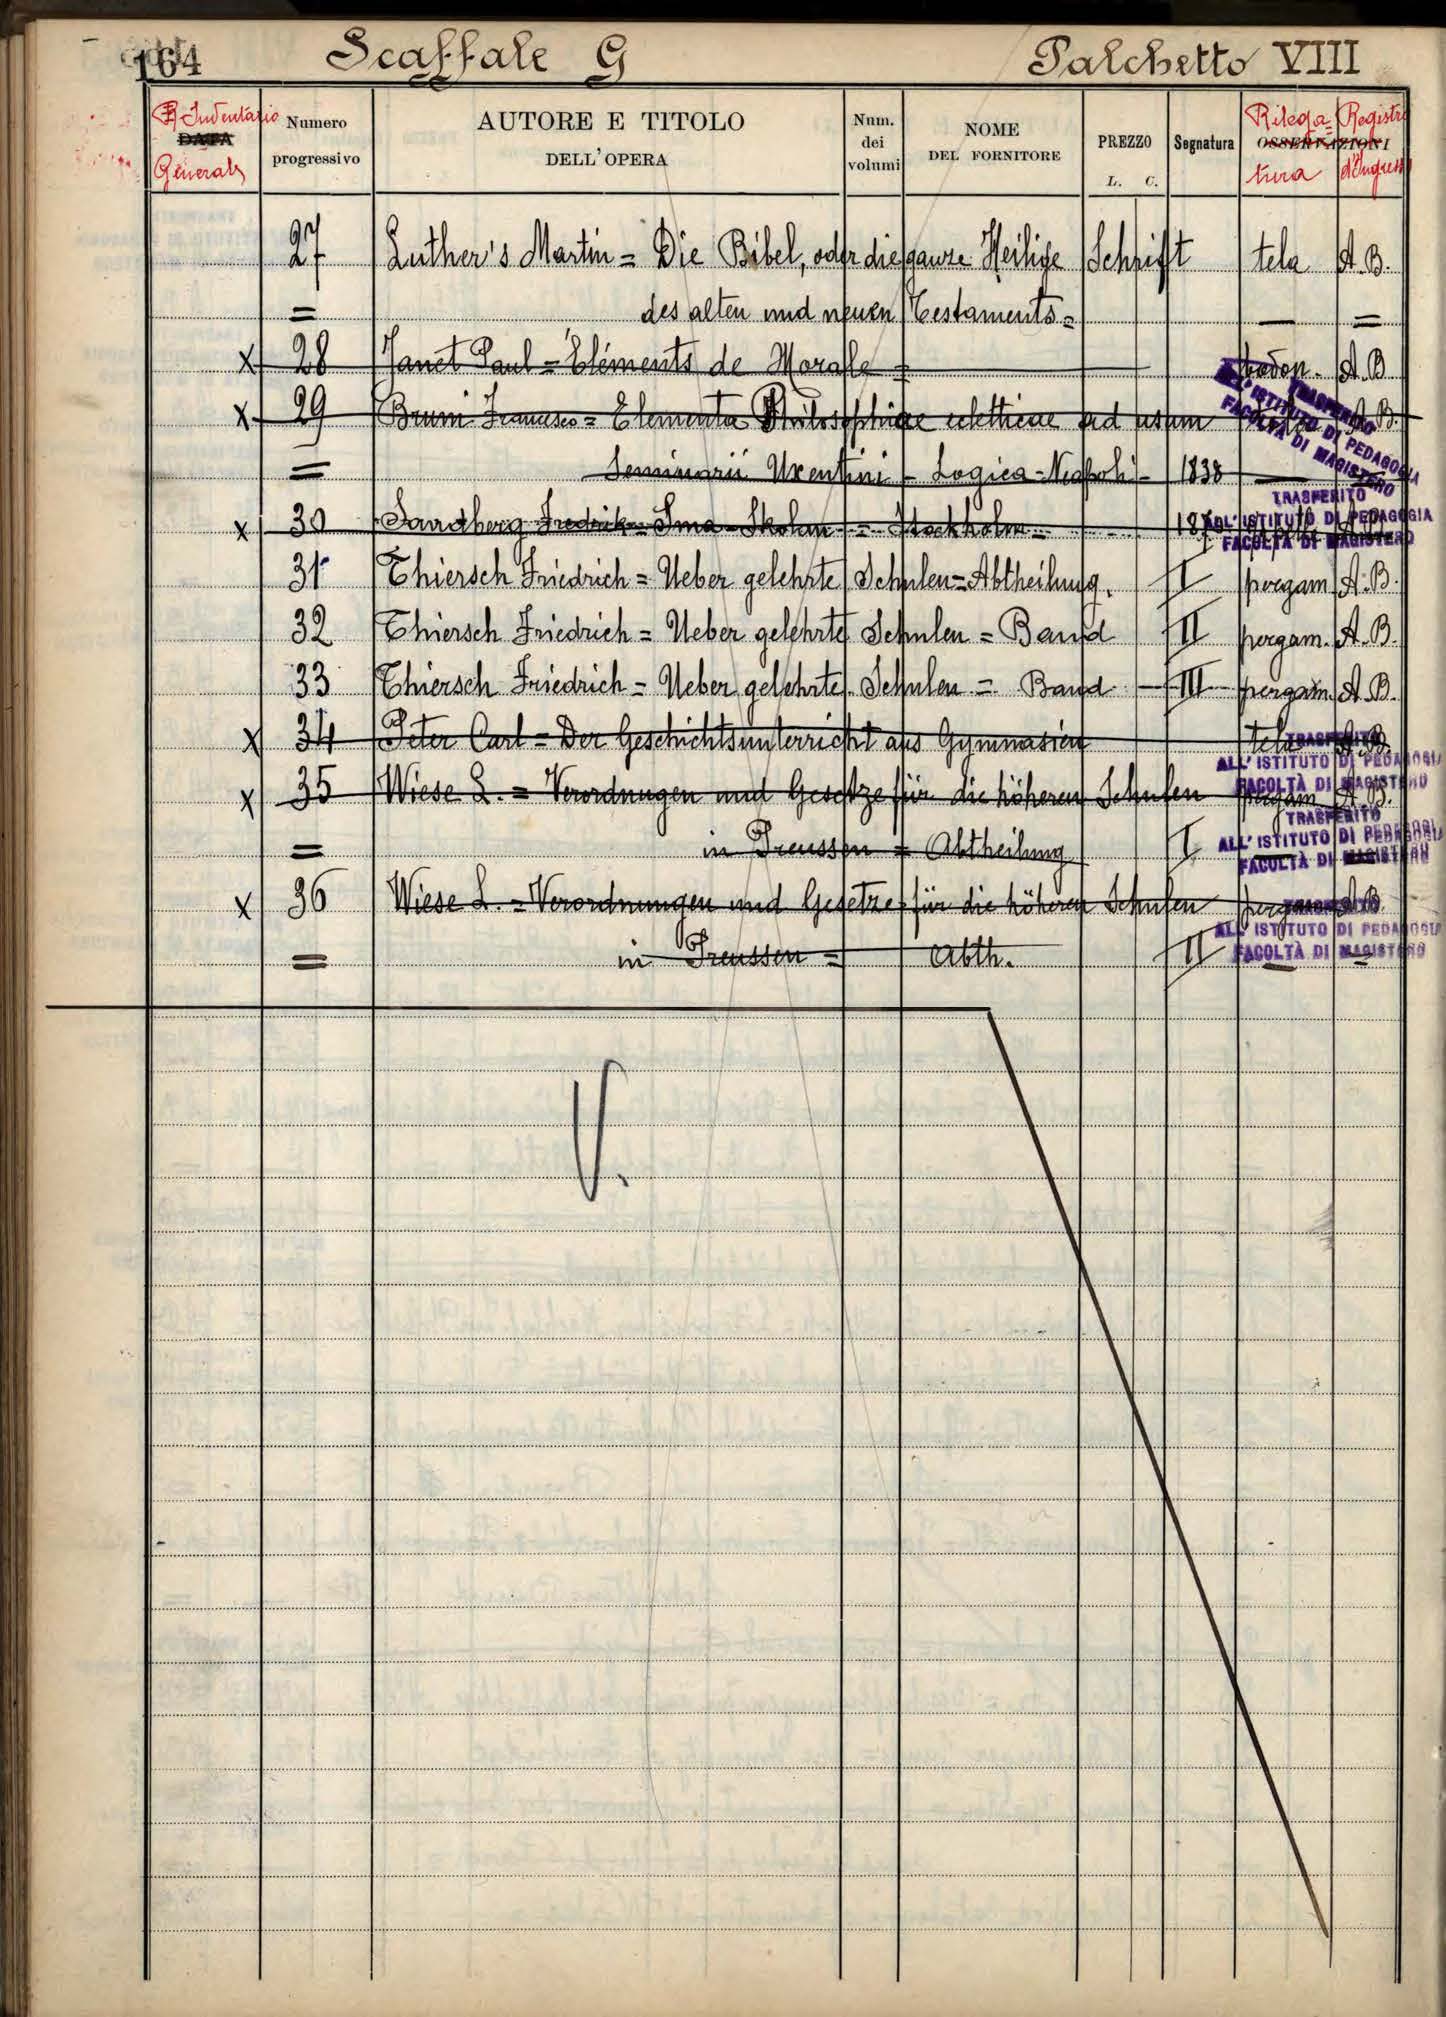 164 Scaffale G Palchetto VIII
Inventario Generale DATA
Numero progressivo
AUTORE E TITOLO DELL'OPERA
Num. dei volumi
NOME DEL FORNITORE
PREZZO L. C.
Segnatura
Rilega=tura Registri d'Ingresso
OSSERVAZIONI
27 Luther's Martin = Die Bibel, oder die ganze Heilige Schrift tela A.B.
= des alten und neuen Testaments = — =
X 28 Janet Paul = Eléments de Morale = bodon. A.B
X 29 Bruni Francesco = Elementa Philosophiae ecletticae ad usum A.B.
= Seminarii Uxentini - Logica - Neapoli - 1838 —
TRASFERITO
ALL'ISTITUTO DI PEDAGOGIA
FACOLTÀ DI MAGISTERO
X 30 Sandberg Fredrik = Sma Skolan = Stockholm =
TRASFERITO
ALL'ISTITUTO DI PEDAGOGIA
FACOLTÀ DI MAGISTERO
31 Thiersch Friedrich = Ueber gelehrte Schulen = Abtheilung. I pergam. A.B.
32 Thiersch Friedrich = Ueber gelehrte Schulen = Band II pergam. A.B.
33 Thiersch Friedrich = Ueber gelehrte Schulen = Band — III pergam. A.B.
X 34 Peter Carl = Der Geschichtsunterricht aus Gymnasien tela A.B.
TRASFERITO
ALL'ISTITUTO DI PEDAGOGIA
FACOLTÀ DI MAGISTERO
X 35 Wiese L. = Verordnugen und Gesetze für die höheren Schulen pergam A.B.
= in Preussen = Abtheilung I —
TRASFERITO
ALL'ISTITUTO DI PEDAGOGIA
FACOLTÀ DI MAGISTERO
X 36 Wiese L. = Verordnungen und Gesetze für die höheren Schulen pergam A.B.
= in Preussen = Abth. II — =
TRASFERITO
ALL'ISTITUTO DI PEDAGOGIA
FACOLTÀ DI MAGISTERO
V.